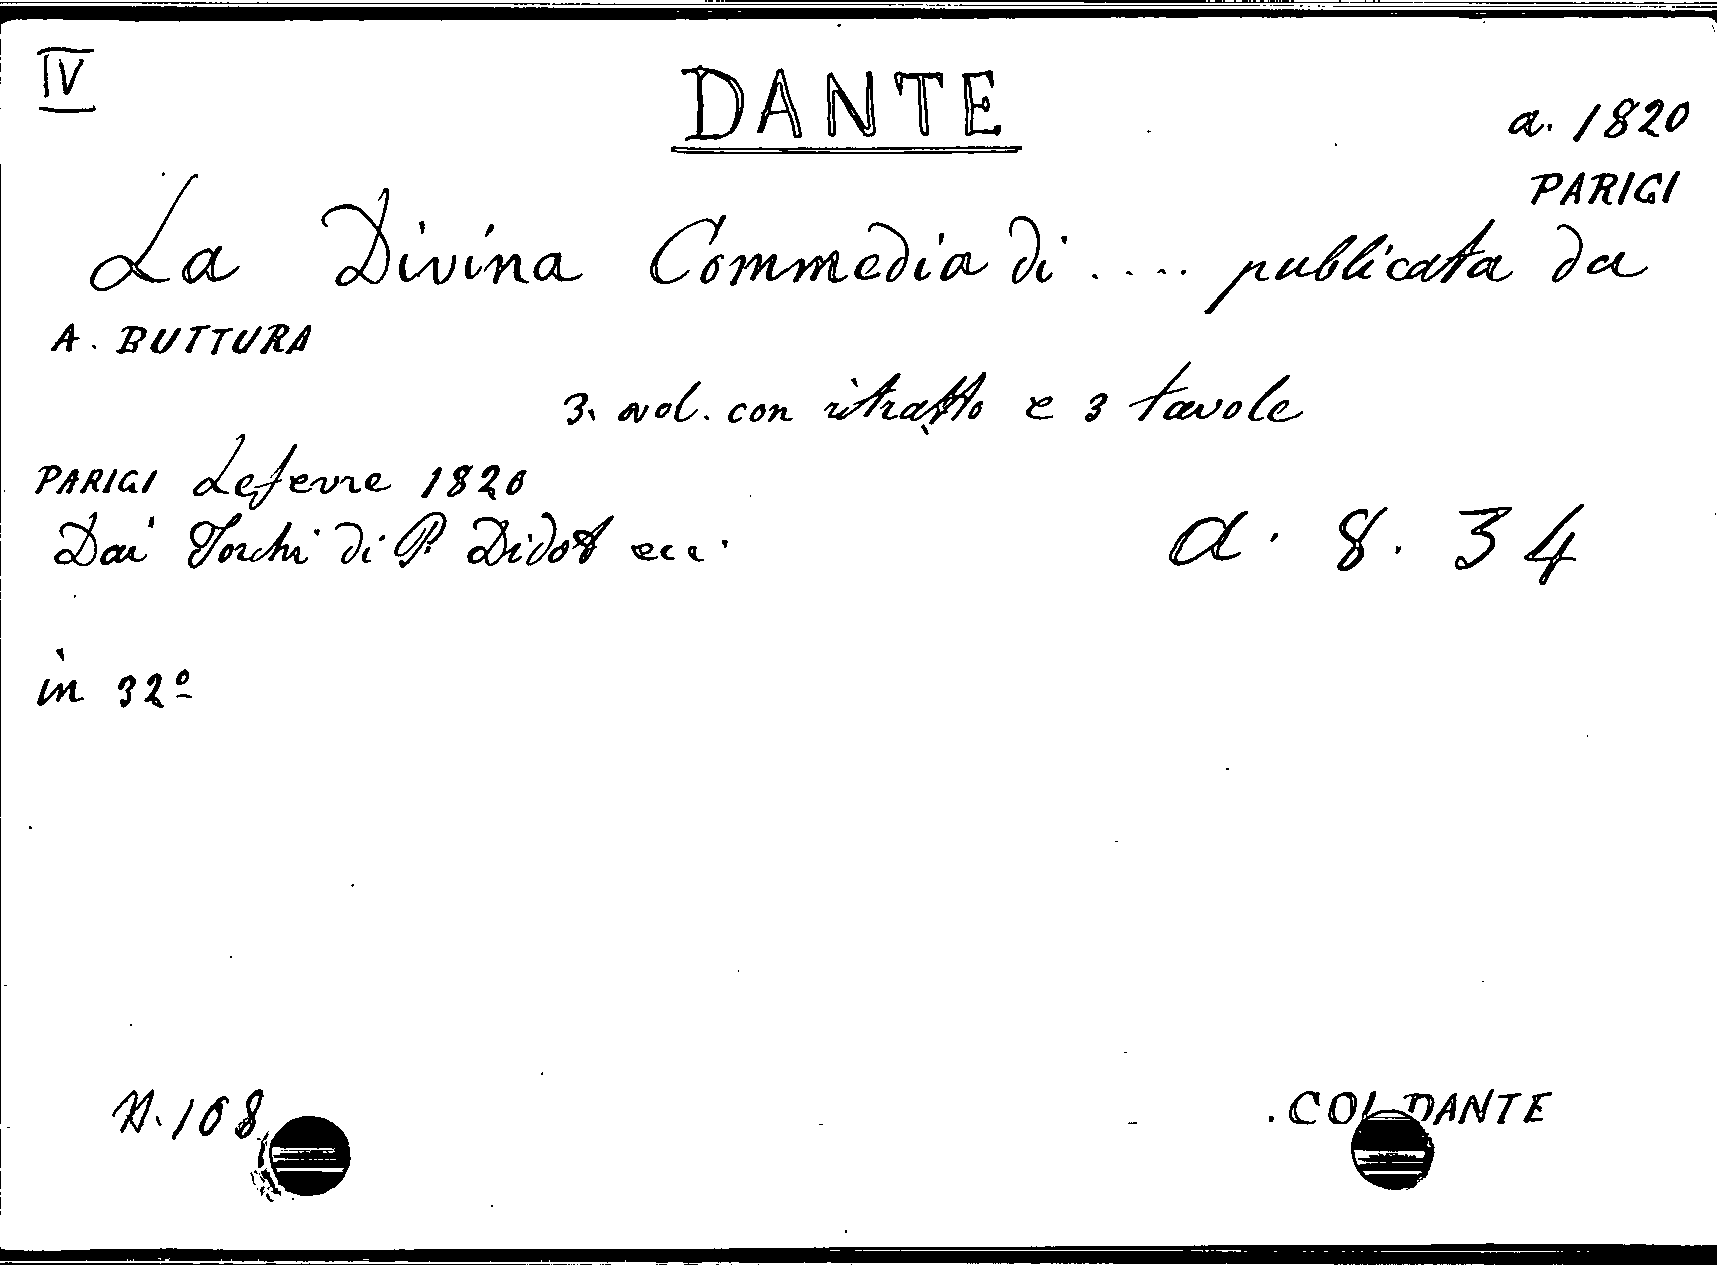 IV
DANTE
a. 1820
PARIGI
La Divina Commedia di .... publicata da
A. BUTTURA
3. vol. con ritratto e 3 tavole
PARIGI Lefevre 1820
Dai Torchi di P. Didot ecc.
a. 8. 34
in 32º
N. 108
COL DANTE